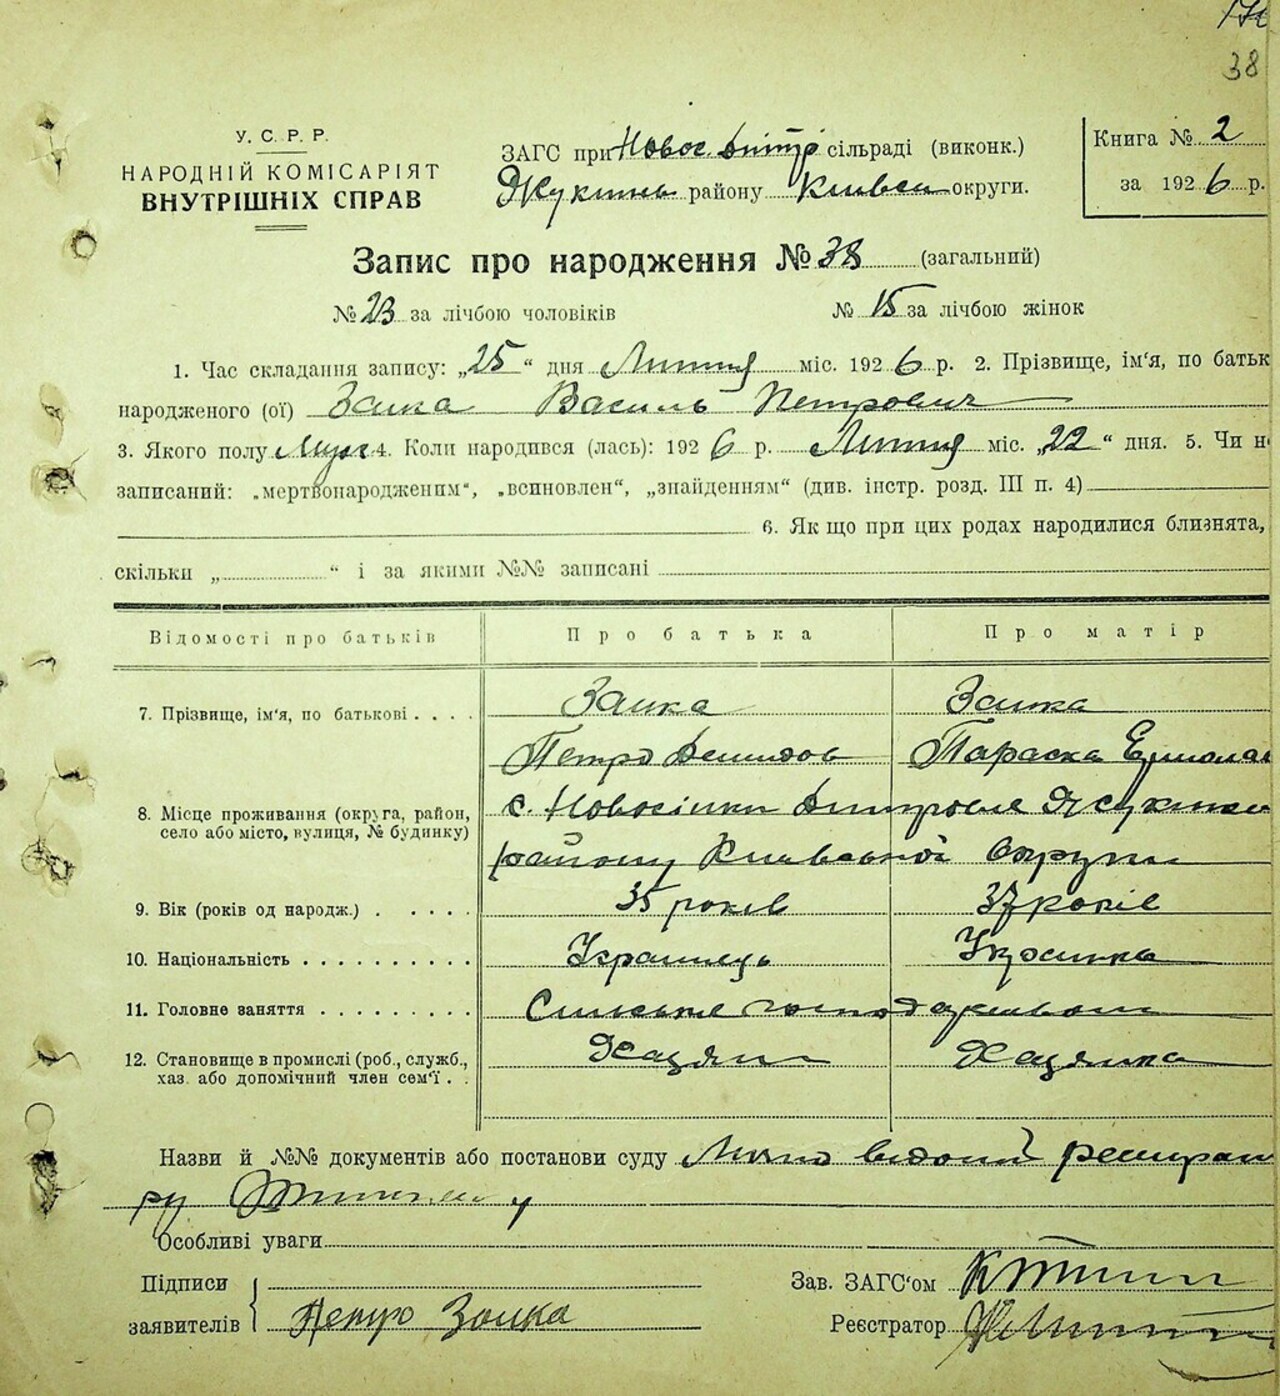 38
У. С. Р. Р.
НАРОДНІЙ КОМІСАРІЯТ
ВНУТРІШНІХ СПРАВ
ЗАГС при Новос. Дмітр сільраді (виконк.)
Жукинь району Київськ округи.
Книга № 2
за 1926 р.
Запис про народження № 38 (загальний)
№ 23 за лічбою чоловіків № 15 за лічбою жінок
1. Час складання запису: „25“ дня Липня міс. 1926 р. 2. Прізвище, ім‘я, по батьк
народженого (ої) Заика Василь Петрович
3. Якого полу Муж 4. Коли народився (лась): 1926 р. Липня міс. „22“ дня. 5. Чи н
записаний: „мертвонародженим“, „всиновлен“, „знайденням“ (див. інстр. розд. III п. 4)
6. Як що при цих родах народилися близнята,
скільки „ “ і за якими №№ записані
Відомості про батьків Про батька Про матір
7. Прізвище, ім‘я, по батькові Заика Заика
Петро Демидов Параска Ермолає
8. Місце проживання (округа, район, село або місто, вулиця, № будинку) с. Новосілки Дмитровсь Жукинсь
району Київської Округи
9. Вік (років од народж.) 35 років 37 років
10. Національність Українець Украинка
11. Головне заняття Сильське господарство
12. Становище в промислі (роб., служб., хаз. або допомічний член сем‘ї Хазяин Хазяйка
Назви й №№ документів або постанови суду
Особливі уваги
Підписи
заявителів Петро Заика
Зав. ЗАГС‘ом
Реєстратор